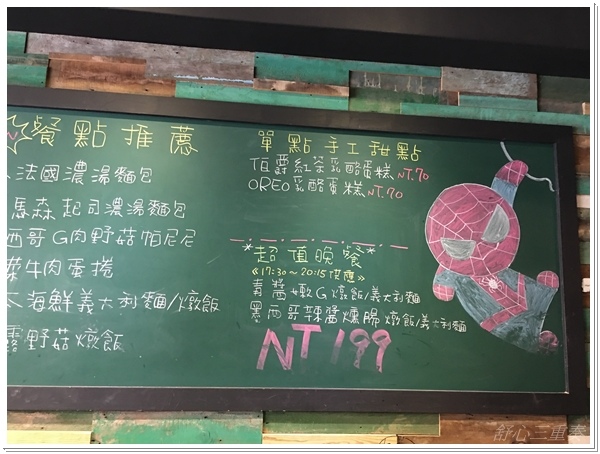 餐點推薦
法國濃湯麵包
馬森起司濃湯麵包
西哥G肉野菇帕尼尼
牛肉蛋捲
海鮮義大利麵/燉飯
野菇燉飯
單點手工甜點
伯爵紅茶乳酪蛋糕 NT.70
OREO乳酪蛋糕 NT.70
*超值晚餐*
《17:30~20:15供應》
青醬嫩G燉飯/義大利麵
墨西哥辣醬燻腸燉飯/義大利麵
NT 199
舒心三重奏